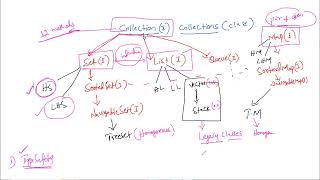 12 methods
Collection(I)
Collections (class)
Set(I)
List(I)
Queue(I)
Map(I)
HS
LHS
SortedSet(I)
AL
LL
Vector(c)
HM
LHM
SortedMap(I)
NavigableSet(I)
Stack(c)
TreeSet (Homogenous)
Legacy Classes
TM
Homoge
1) TypeSafety